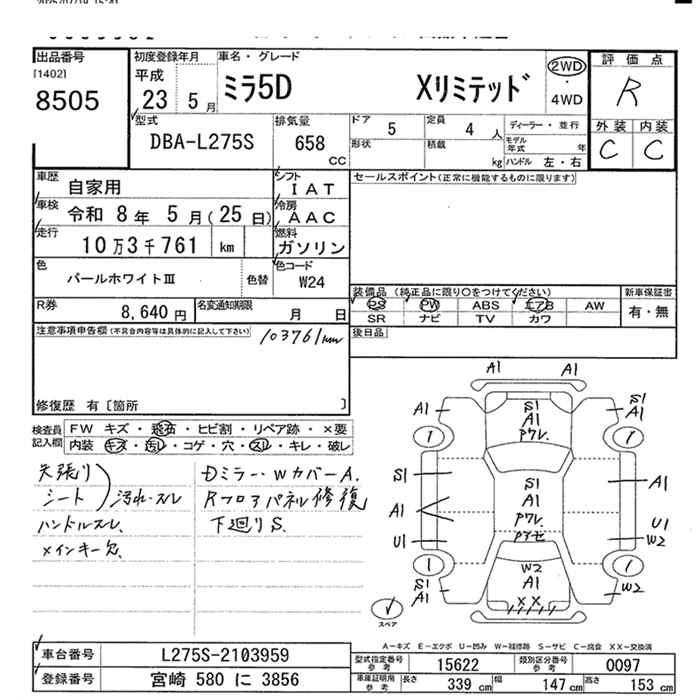 出品番号
[1402]
8505
初度登録年月
平成
23 5 月
車名・グレード
ミラ5D Xリミテッド
2WD
・
4WD
評価点
R
外装 内装
C C
型式
DBA-L275S
排気量
658
CC
ドア
5
定員
4 人
形状
積載
kg
ディーラー・並行
モデル年式 年
ハンドル 左・右
車歴
自家用
シフト
IAT
車検
令和 8 年 5 月(25 日)
冷房
AAC
走行
10万3千761 km
燃料
ガソリン
色
パールホワイトⅢ
色替
色コード
W24
R券
8,640 円
名変通知期限
月 日
セールスポイント(正常に機能するものに限ります)
装備品 (純正品に限り○をつけてください)
PS PW ABS エアB AW
SR ナビ TV カワ
新車保証書
有・無
後日品
注意事項申告欄(不具合内容等は具体的に記入して下さい)
103761km
修復歴 有〔箇所 〕
検査員
記入欄
FW キズ・飛石・ヒビ割・リペア跡・×要
内装 キズ・汚レ・コゲ・穴・スレ・キレ・破レ
天張り
シート
汚れ・スレ
ハンドルスレ
×インキー欠
Dミラー・WカバーA.
Rフロアパネル修復
下廻りS.
A1 A1
A1 S1 A1 S1 A1
アワレ
1 1
S1 S1 A1
A1 A1
アワレ
U1 アアセ U1
W2
1 W2 1
S1 A1 W2
A1 XX
スペア
A-キズ E-エクボ U-凹み W-補修跡 S-サビ C-腐食 XX-交換済
車台番号
L275S-2103959
登録番号
宮崎 580 に 3856
型式指定番号
参考
15622
類別区分番号
参考
0097
車庫証明用
参考
長さ
339 cm
幅
147 cm
高さ
153 cm